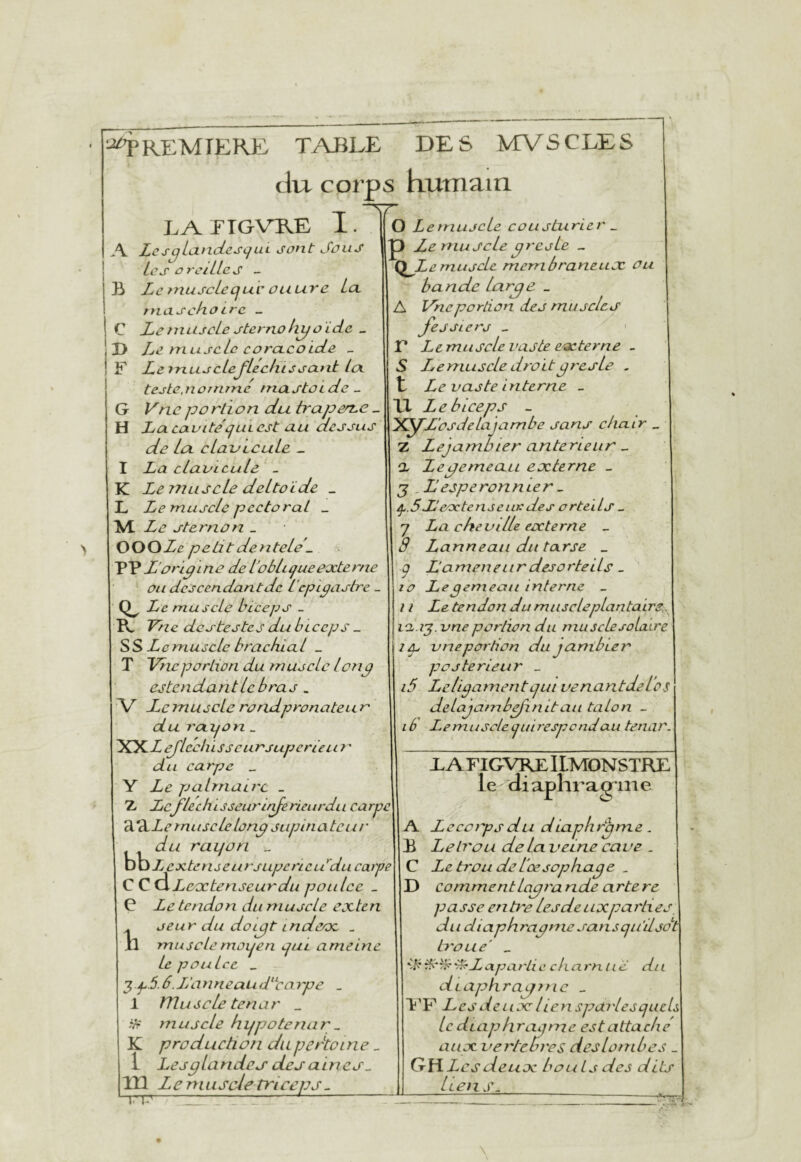 PREMIERE TABLE DES MVSCLES
du corps humain
LA FIGVRE I.
A Les glandes qui sont sous
les oreilles _
B Le muscle qui ouure la
maschoire _
C Le muscle sterno hyoide _
D Le muscle coracoide _
F Le muscle fléchissant la
teste, nommé mastoide _
G Vne portion du trapeze _
H La cavité qui est au dessus
de la clavicule _
I La clavicule _
K Le muscle deltoide _
L Le muscle pectoral _
M Le sternon _
OOO Le petit dentelé _
PP L'origine de l'oblique externe
ou descendant de l'epigastre _
Q Le muscle biceps _
R Vne des testes du biceps _
SS Le muscle brachial _
T Vne portion du muscle long
estendant le bras _
V Le muscle rond pronateur
du rayon _
XX Le flechisseur superieur
du carpe _
Y Le palmaire _
Z Le flechisseur inferieur du carpe
aa Le muscle long supinateur
du rayon _
bb L'extenseur superieur du carpe
CCd L'extenseur du poulce _
e Le tendon du muscle exten
seur du doigt index _
h muscle moyen qui ameine
le poulce _
3 4. 5. 6. L'anneau du carpe _
i Muscle tenar _
* muscle hypotenar _
K production du peritoine _
l Les glandes des aines _
m Le muscle triceps _
O Le muscle cousturier _
p Le muscle gresle _
Q Le muscle membraneux ou
bande large _
Δ Vne portion des muscles
fessiers _
r Le muscle vaste externe _
S Le muscle droit gresle _
t Le vaste interne _
u Le biceps _
Xy L'os de la jambe sans chair _
Z Le jambier anterieur _
2 Le gemeau externe _
3 L'esperonnier _
4. 5 L'extenseur des orteils _
7 La cheville externe _
8 L'anneau du tarse _
9 L'ameneur des orteils _
10 Le gemeau interne _
11 Le tendon du muscle plantaire
12. 13. vne portion du muscle solaire
14 vne portion du jambier
posterieur _
15 Le ligament qui venant de l'os
de la jambe finit au talon _
16 Le muscle qui respond au tenar.
LA FIGVRE II. MONSTRE
le diaphragme
A Le corps du diaphrgme .
B Le trou de la veine cave _
C Le trou de l'œsophage _
D comment la grande artere
passe entre les deux parties
du diaphragme sans qu'il soit
troué _
**** La partie charnue du
diaphragme _
FF Les deux liens par lesquels
le diaphragme est attaché
aux vertebres des lombes _
GH Les deux bouts des dits
liens _